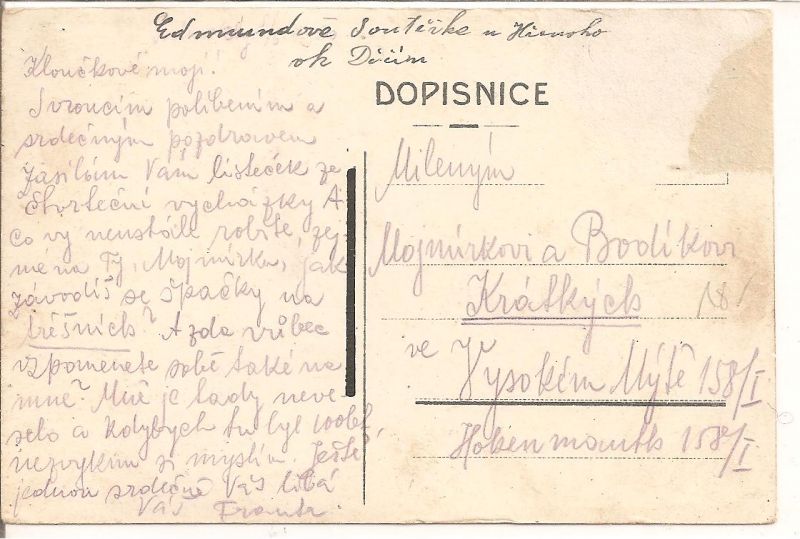 Edmundově Soutěske u Hřenska
ok Děčín
DOPISNICE
Kloučkové moji!
S vroucím políbením a
srdečným pozdravem
zasílám Vám lísteček ze
čtvrteční vycházky. A
co vy neustále robíte, zej-
ména Ty, Mojmírku, jak
závodíš se špačky na
třešních? A zda vůbec
vzpomenete sobě také na
mne? Mně je tady neve-
selo a kdybych tu byl 100 let,
nezvyknu si myslím. Ještě
jednou srdečně Vás líbá
Váš
Mileným
Mojmírkovi a Bodíkovi
Krátkých
ve
Vysokém Mýtě 158/I
Hohenmauth 158/I